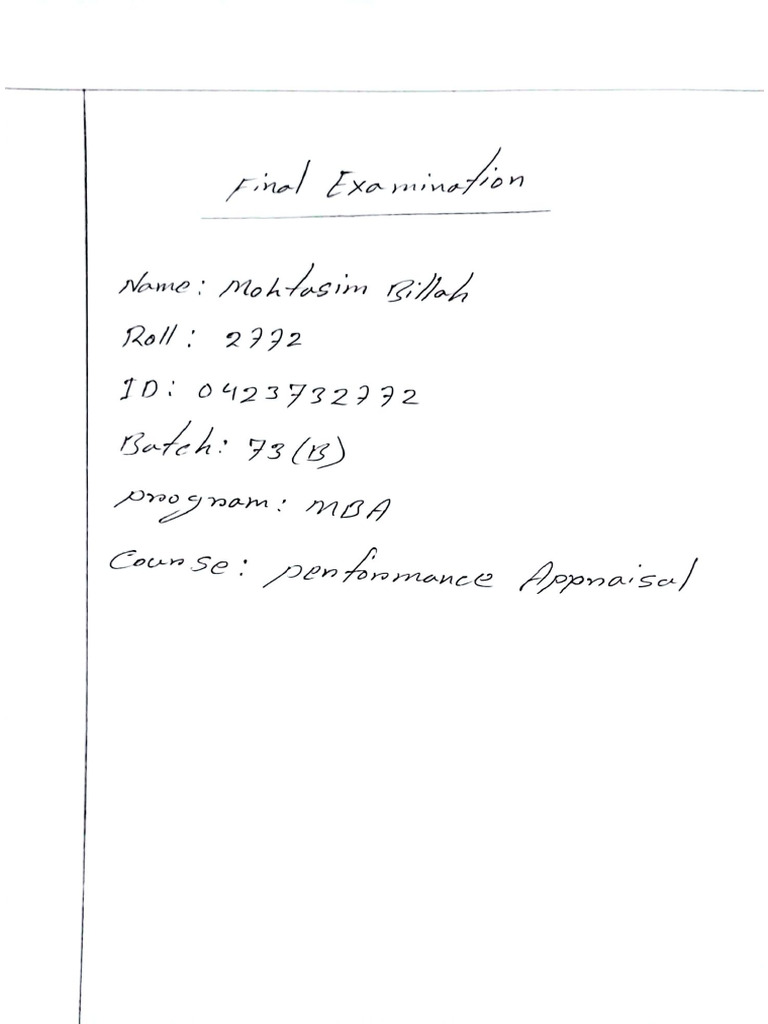 Final Examination
Name: Mohtasim Billah
Roll: 2772
ID: 0423732772
Batch: 73(B)
program: MBA
Course: performance Appraisal